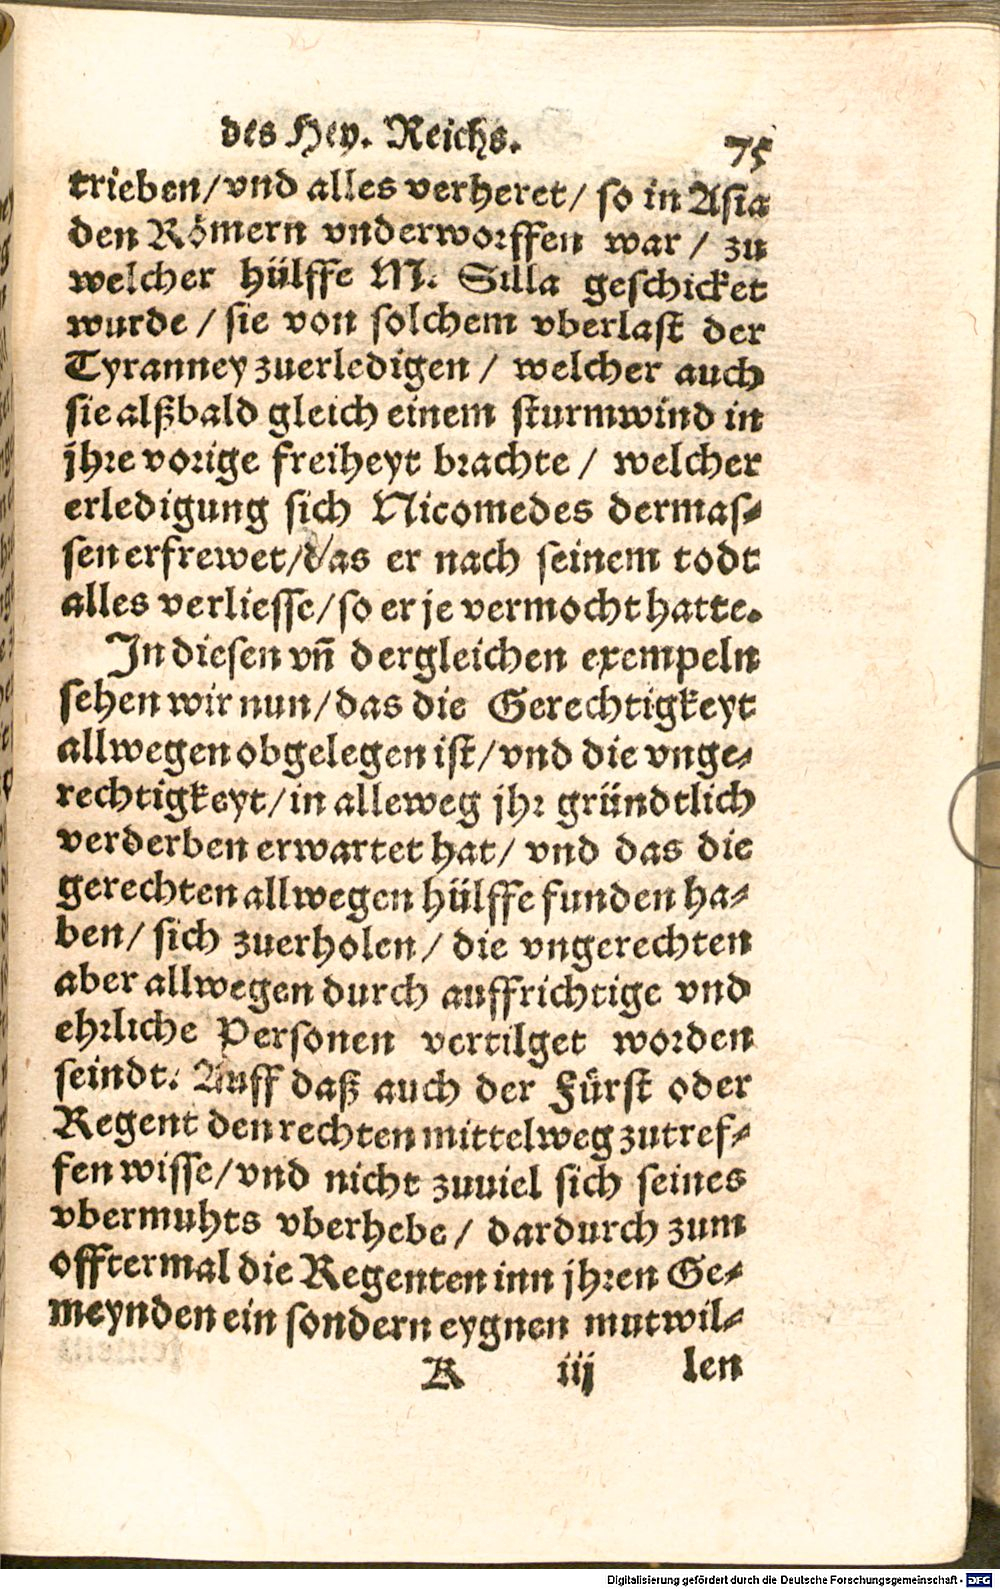 des Hey. Reichs. 75
trieben/vnd alles verheret/ so in Asia
den Römern vnderworffen war / zu
welcher hülffe M. Silla geschicket
wurde / sie von solchem vberlast der
Tyranney zuerledigen / welcher auch
sie alßbald gleich einem sturmwind in
jhre vorige freiheyt brachte / welcher
erledigung sich Nicomedes dermas-
sen erfrewet/das er nach seinem todt
alles verliesse/so er je vermocht hatte.
In diesen vñ dergleichen exempeln
sehen wir nun/das die Gerechtigkeyt
allwegen obgelegen ist/vnd die vnge-
rechtigkeyt/in alleweg jhr gründtlich
verderben erwartet hat/ vnd das die
gerechten allwegen hülffe funden ha-
ben/ sich zuerholen/ die vngerechten
aber allwegen durch auffrichtige vnd
ehrliche Personen vertilget worden
seindt. Auff daß auch der Fürst oder
Regent den rechten mittelweg zutref-
fen wisse/vnd nicht zuuiel sich seines
vbermuhts vberhebe/ dardurch zum
offtermal die Regenten inn jhren Ge-
meynden ein sondern eygnen mutwil-
K iij len
Digitalisierung gefördert durch die Deutsche Forschungsgemeinschaft - DFG